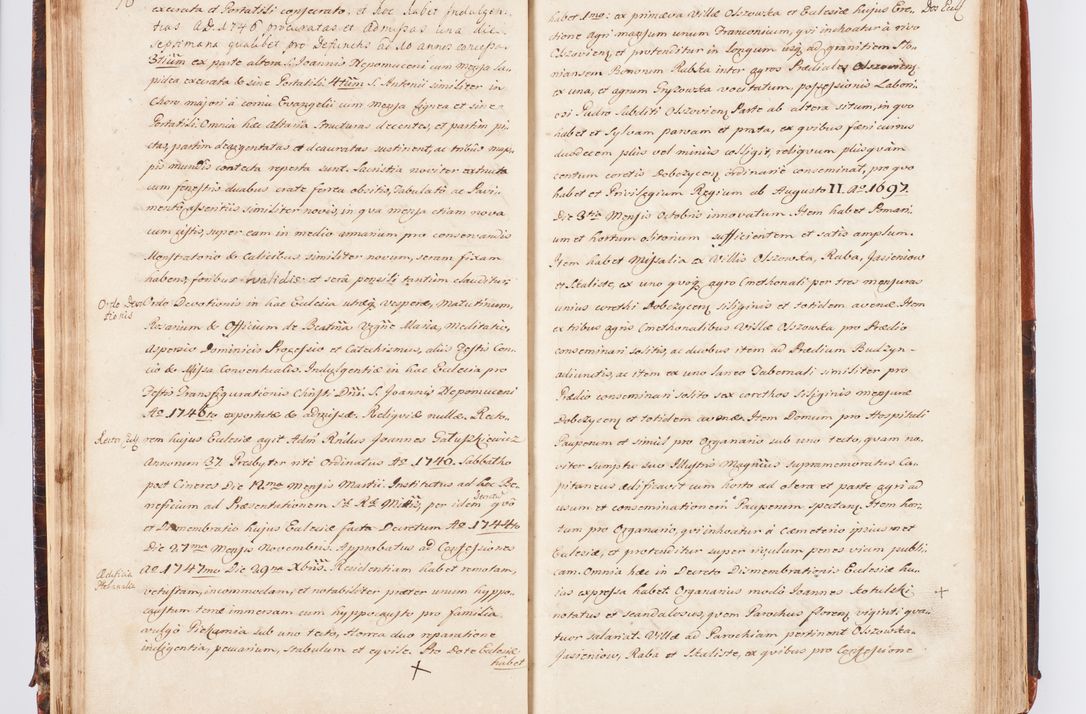 execrata et Portatili consecrato, et hoc habet Indulgen-
tias A.D. 1746 procuratas et admissas una die
septimana qualibet pro Defunctis ad 10 annis concessa.
3tium ex parte altera S. Joannis Nepomuceni cum mensa la-
pidea execrata & sine Portatili. 4tum S. Antonii similiter in
Choro majori à cornu Evangelii cum mensa lignea et sine
Portatili. Omnia hac Altaria structuras decentes, et partim pi-
ctas, partim deargentatas et deauratas sustinent, ac tribus map-
pis mundis contecta reperta sunt. Sacristia noviter extructa
cum fenestris duabus crate ferrea obsitis, Tabulatô ac Pavi-
mentô asseritiis similiter novis, in qva mensa etiam nova
cum cistis, super eam in medio armarium pro conservandis
Monstratorio & Calicibus similiter novum, seram fixam
habens, foribus validis et serâ pensili tantum clauditur.
Ordo Devo-
tionis
Ordo Devotionis in hac Eclesia utrâq. Vesperæ, Matutinum,
Rosarium & Officium de Beatma Vegne Maria, Meditatio,
Aspersio Dominicis Processio et Catechismus, aliis Festis Con-
cio & Missa Conventualis. Indulgentiæ in hac Eclesia pro
Festis Transfigurationis Christi Dni. S. Joannis Nepomuceni
Ao. 1746to exportatæ & admissæ. Reliqviæ nullæ. Recto-
Rector Ecl.
rem hujus Eclesiæ agit Adm Rndus Joannes Gałuszkiewicz
Annorum 37. Presbyter ritè Ordinatus Ao. 1740. Sabbatho
post Cineres Die 12ma Mensis Martii. Institutus ad hoc Be-
neficium ad Præsentationem S. R. Mttis, per idem qvo
et Dismembratio hujus Eclesiæ facta Decretum Ao. 1744to
Die 27ma Mensis Novembris. Approbatus ad Confessiones
Ao. 1747mo Die 29na Xbris. Residentiam habet remotam,
Ædificia
vetustam, incommodam, et notabiliter præter unum hyppo-
caustum terræ immersam cum hyppocausto pro familia
vulgò Piekarnia sub uno tecto, Horrea duo reparatione
indigentia, pecuarium, stabulum et eqvile. Pro Dote Eclesiæ
habet
habet 1mo: ex primæva Villæ Olszowska et Eclesiæ hujus Ere-
Dos Ecclæ
ctione Agri mansum unum Franconicum, qvi inchoatur à rivo
Olszovien et protenditur in longum usq. ad granitiem Sto-
niansem Bonorum Rabska inter agros Prædiales Olszovien
ex una, et agrum Gryzowska vocitatum, possessionis Labori-
osi Pudło Subditi Olszovien Parte ab altera situm, in qvo
habet et Sylvam parvam et prata, ex qvibus fæni currus
duodecem plus vel minus colligit, reliqvum plusqvam
centum coretis Dobczycen ordinariè conseminat, pro qvo
habet et Privilegium Regium ab Augusto II. Ao. 1697.
Die 3tia Mensis Octobris innovatum. Item habet Pomari-
um et hortum olitorium sufficientem et satis amplum.
Item habet Missalia ex Villis Olszowska, Raba, Jasieniow
et Skaliste, ex uno qvoq. agro Cmethonali per tres mensuras
unius corethi Dobczycen siliginis et totidem avenæ. Item
ex tribus agris Cmethonalibus Villæ Olszowska pro Prædio
conseminari solitis, ac duobus item ad Prædium Budzyn-
adiunctis, ac item ex uno laneo Tabernati similiter pro
Prædio conseminari solito sex corethos siliginis mensuræ
Dobczycen et totidem avenæ. Item Domum pro Hospitali
Pauperum et simul pro Organario sub uno tecto, qvam no-
viter sumptu suo Illustris Magnificus supramemoratus Ca-
pitaneus ædificavit cum horto ad olera et parte agri ad
usum et conseminationem Pauperum spectan. Item hor-
tum pro Organario, qvi inchoatur à Cæmeterio ipsiusmet
Eclesiæ, et protenditur super rivulum penes viam publi-
cam. Omnia hæc in Decreto Dismembrationis Eclesiæ hu-
jus expressa habet. Organarius modò Joannes Kotulski
notatus et scandalosus, qvem Parochus floren viginti qva-
tuor salariat. Villæ ad Parochiam pertinent Olszowska,
Jasieniow, Raba et Skaliste, ex qvibus pro Confessione